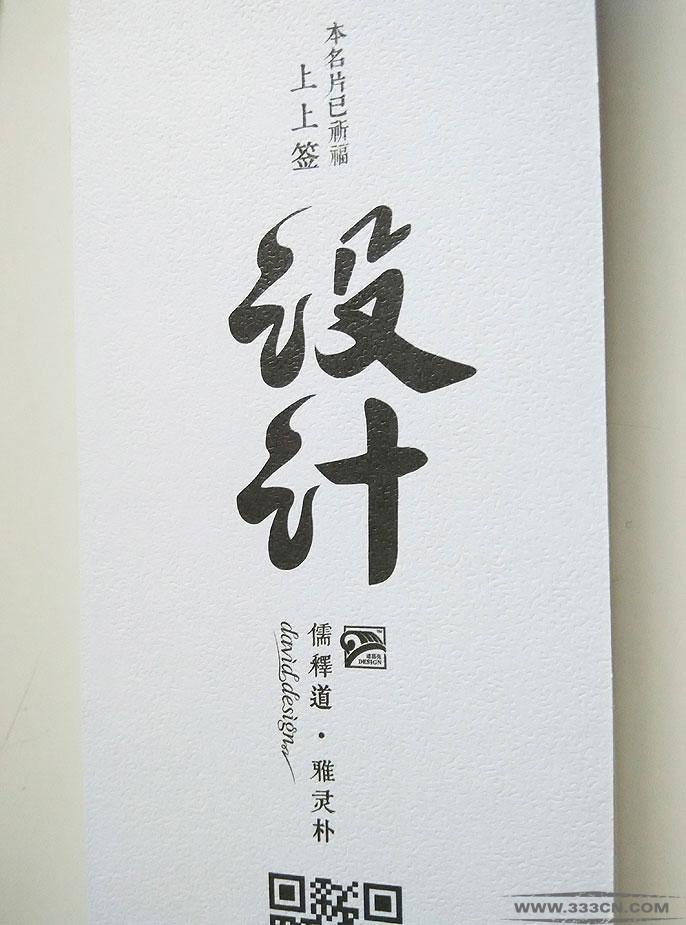 本名片已祈福
上上签
设计
DESIGN
儒釋道·雅灵朴
david design
WWW.333CN.COM